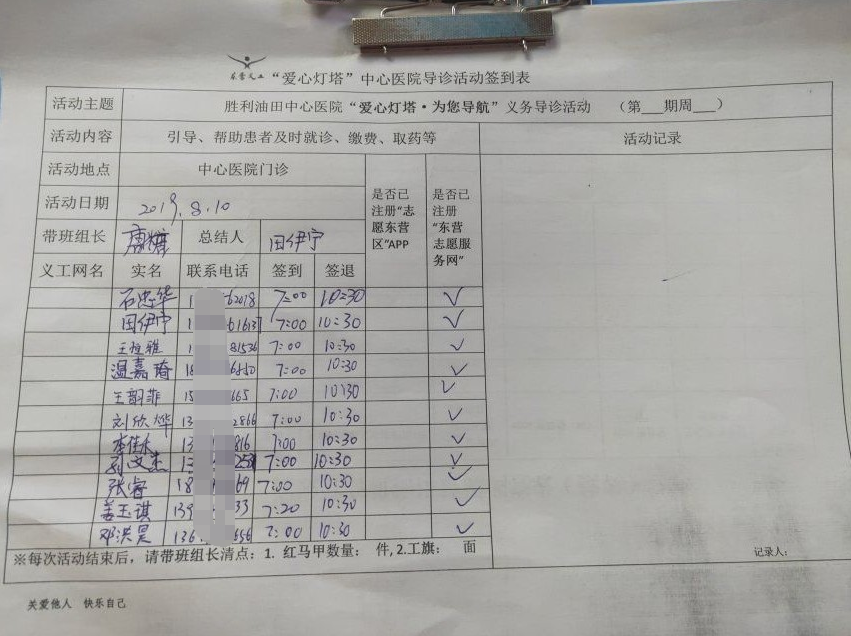 东营义工 “爱心灯塔”中心医院导诊活动签到表
活动主题 胜利油田中心医院“爱心灯塔·为您导航”义务导诊活动 (第___期周___)
活动内容 引导、帮助患者及时就诊、缴费、取药等 活动记录
活动地点 中心医院门诊
是否已注册“志愿东营区”APP
是否已注册“东营志愿服务网”
活动日期 2019.8.10
带班组长 唐糖 总结人 田伊宁
义工网名 实名 联系电话 签到 签退
石忠华 1 62018 7:00 10:30 ✓
田伊宁 1 61637 7:00 10:30 ✓
王恒雅 1 81536 7:00 10:30 ✓
温嘉琦 18 6550 7:00 10:30 ✓
王韶菲 15 665 7:00 10:30 ✓
刘欣烨 13 2866 7:00 10:30 ✓
李佳木 13 816 7:00 10:30 ✓
刘文杰 258 7:00 10:30 ✓
张睿 18 69 7:00 10:30 ✓
姜玉琪 139 33 7:20 10:30 ✓
邓洪昊 136 656 7:00 10:30 ✓
※每次活动结束后,请带班组长清点:1. 红马甲数量: 件,2.工旗: 面
记录人:
关爱他人 快乐自己